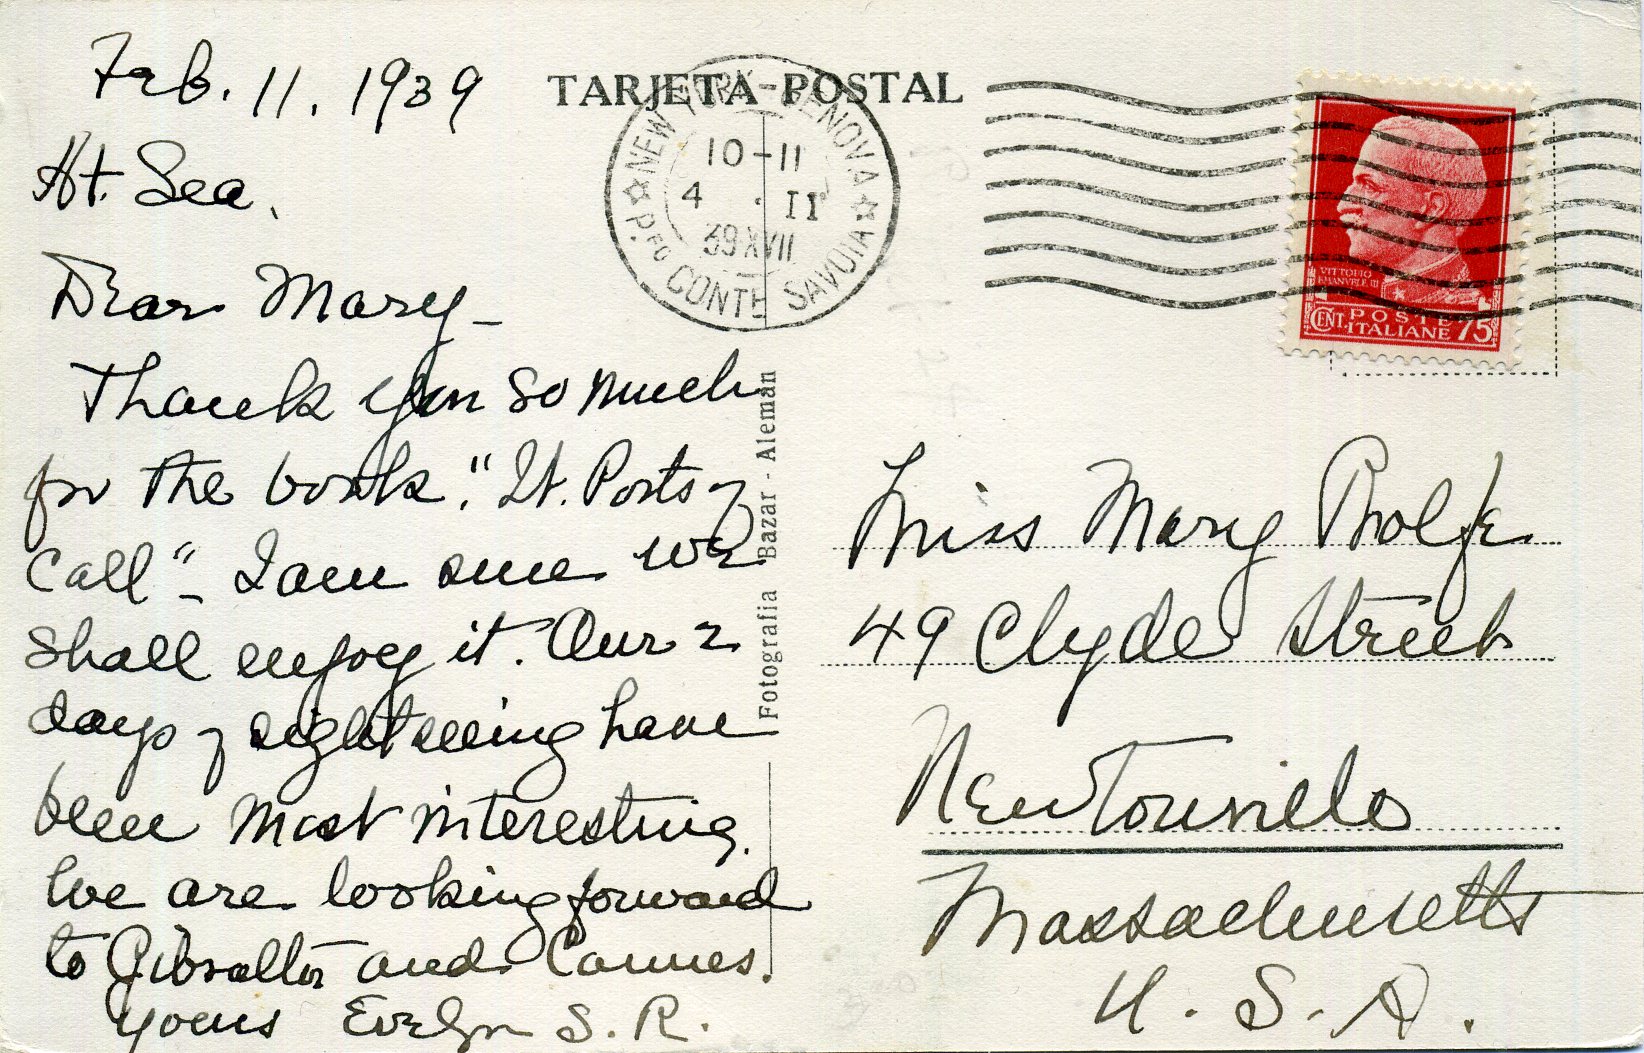 Feb. 11, 1939
At Sea.
Dear Mary –
Thank you so much
for the book, "It. Ports of
Call" – I am sure we
shall enjoy it. Our 2
days of sightseeing have
been most interesting.
We are looking forward
to Gibralter and Cannes.
Yours Evelyn S. R.
TARJETA-POSTAL
NEW YORK - GENOVA
10-11
4 . II
39 XVII
P.FO CONTE SAVOIA
VITTORIO
EMANVELE III
CENT. POSTE ITALIANE 75
Fotografia Bazar - Aleman
Miss Mary Rolfe
49 Clyde Street
Newtonville
Massachusetts
U. S. A.